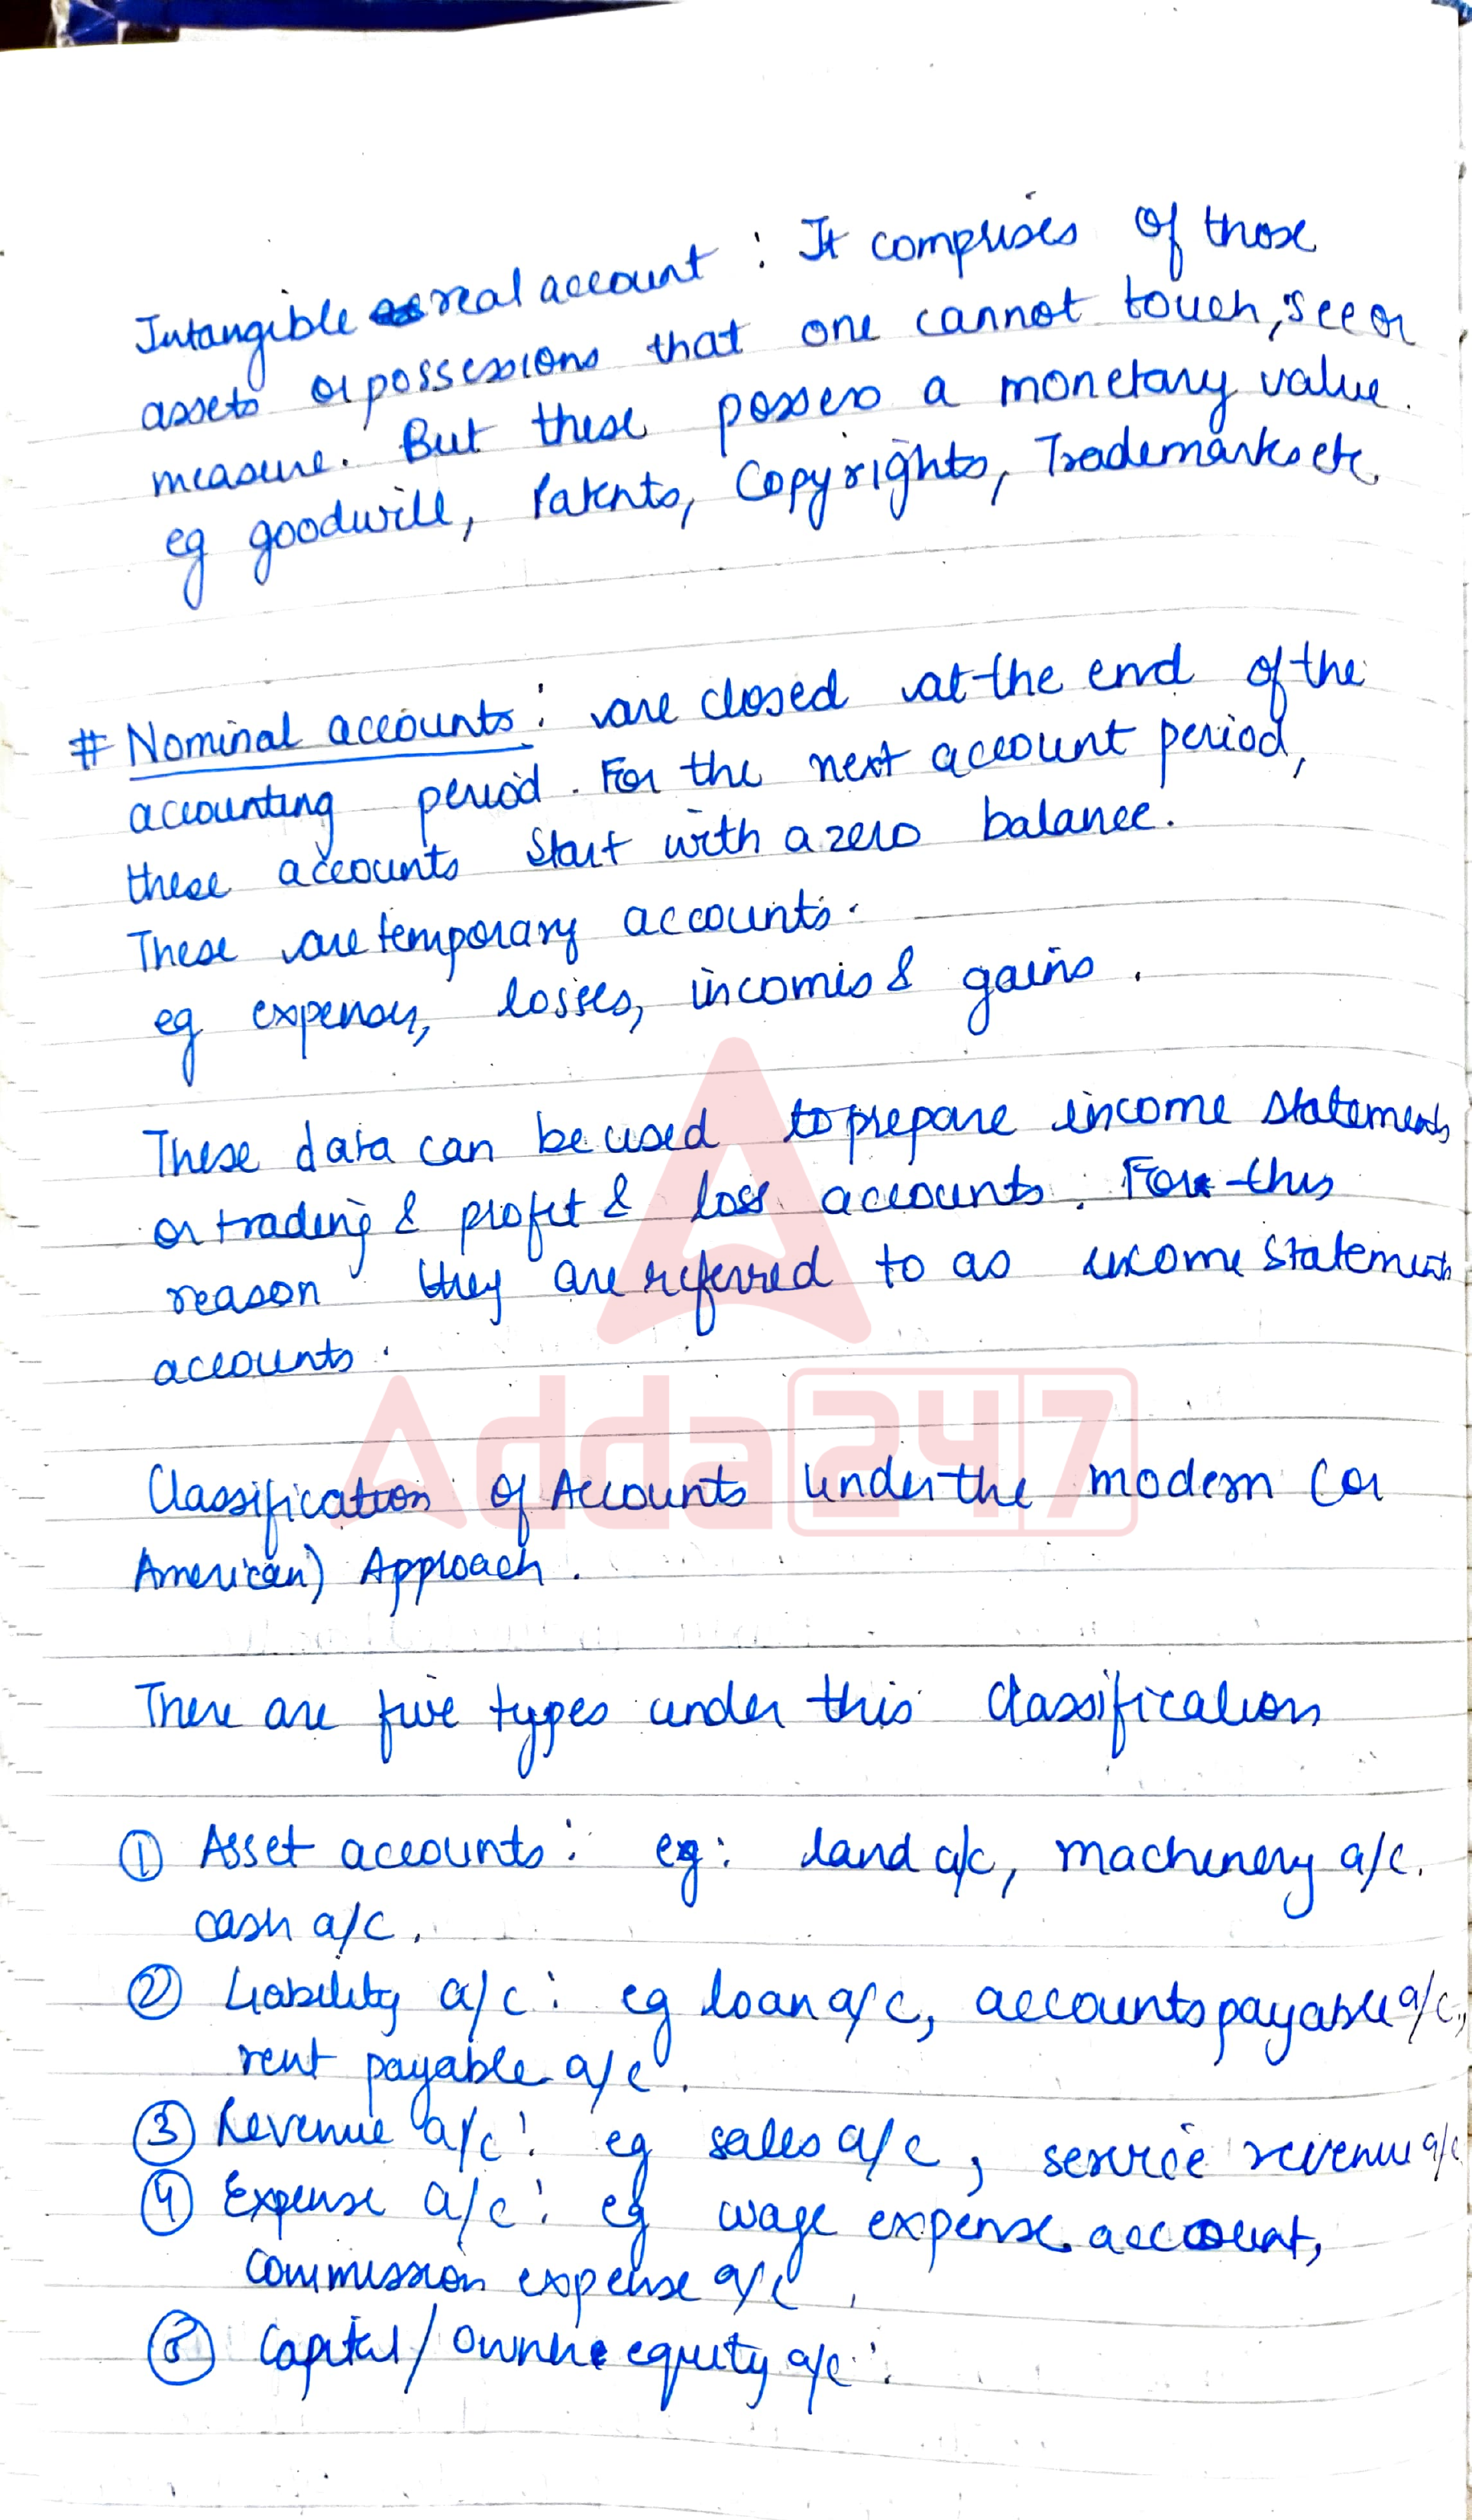 Intangible real account : It comprises of those
assets or possessions that one cannot touch, see or
measure. But these possess a monetary value.
eg goodwill, Patents, Copyrights, Trademarks etc.
# Nominal accounts : are closed at the end of the
accounting period. For the next account period,
these accounts start with a zero balance.
These are temporary accounts.
eg expenses, losses, incomes & gains.
These data can be used to prepare income statements
or trading & profit & loss accounts. For this
reason they are referred to as income statement
accounts.
Adda247
Classification of Accounts under the modern (or
American) Approach.
There are five types under this classification
① Asset accounts : eg: land a/c, machinery a/c.
cash a/c.
② Liability a/c : eg loan a/c, accounts payable a/c,
rent payable a/c.
③ Revenue a/c : eg sales a/c, service revenue a/c
④ Expense a/c : eg wage expense account,
commission expense a/c.
⑤ Capital/owner equity a/c :